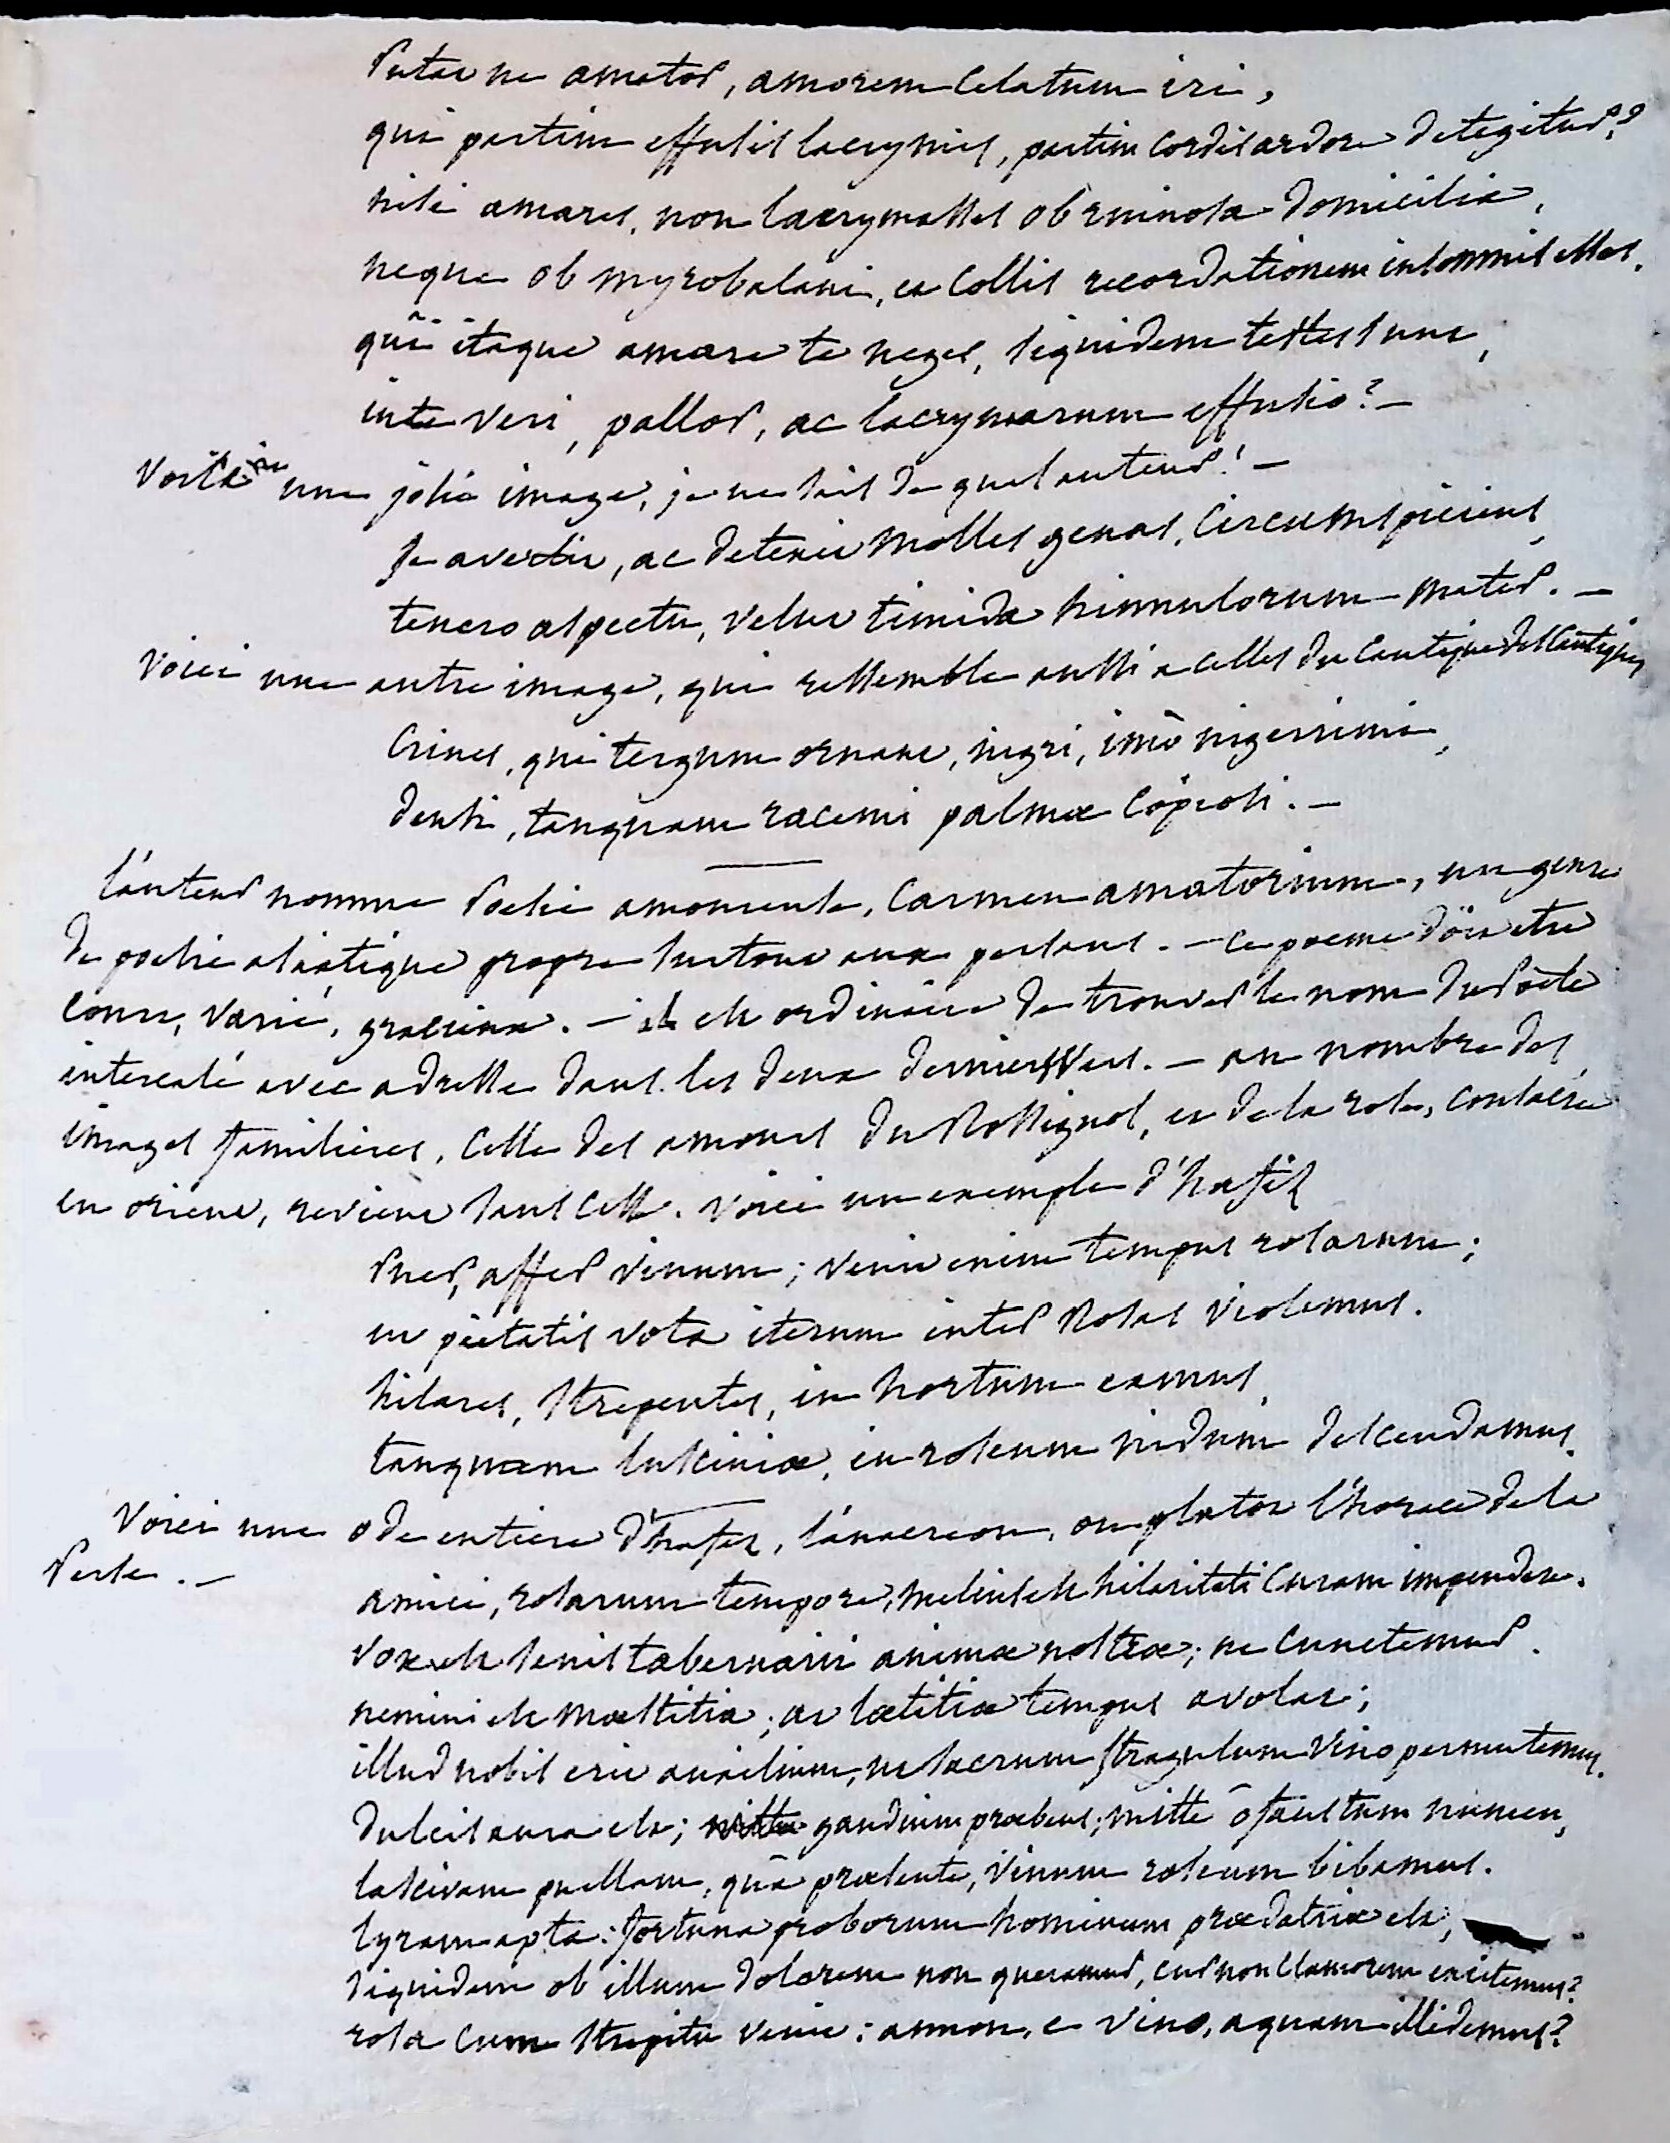 Putat ne amator, amorem celatum iri,
qui partim effusis lacrymis, partim cordis ardore detegitur?
nisi amares, non lacrymasses ob ruinosa domicilia,
neque ob myrobalani, et collis recordationem insomnis esses.
quî itaque amare te neges, siquidem testes sunt,
in te veri, pallor, ac lacrymarum effusio? —
Voila une jolie image, je ne sais de quel auteur! —
Se avertit, ac detexit molles genas, circumspiciens
tenero aspectu, velut timida hinnulorum mater. —
Voici une autre image, qui ressemble aussi a celles du Cantique des Cantiques
Crines, qui tergum ornant, nigri, imò nigerrimi,
densi, tanquam racemi palmæ copiosi. —
l'auteur nomme Poesie amoureuse, Carmen amatorium, un genre
de poesie asiatique propre surtout aux persans. — ce poeme doit etre
court, varié, gracieux. — il est ordinaire de trouver le nom du Poëte
intercalé avec adresse dans les deux derniers Vers. — au nombre des
images familieres, celle des amours du Rossignol, et de la rose, consacrée
en orient, revient sans cesse. voici un exemple d'hafiz
Puer, affer vinum; venit enim tempus rosarum;
ut pietatis vota iterum inter Rosas violemus.
hilares, strepentes, in hortum eamus,
tanquam lusciniæ, in roseum nidum descendamus.
Voici une ode entiere d'hafez, l'anacreon, ou plutot l'horace de la
Perse. —
amici, rosarum tempore, melius est hilaritati curam impendere.
Vox est senis tabernarii animæ nostræ; ne cunctemur.
nemini est mæstitia; at lætitiæ tempus avolat;
illud nobis erit auxilium, ut sacrum stragulum vino permutemus.
dulcis aura est; gaudium præbens; mitte ô faustum numen,
lascivam puellam, quâ præsente, vinum roseum bibamus.
lyram apta: fortuna proborum hominum prædatrix est,
siquidem ob illum dolorem non queramur, cur non clamorem excitemus?
rosa cum strepitu venit: annon, e vino, aquam illidemus?